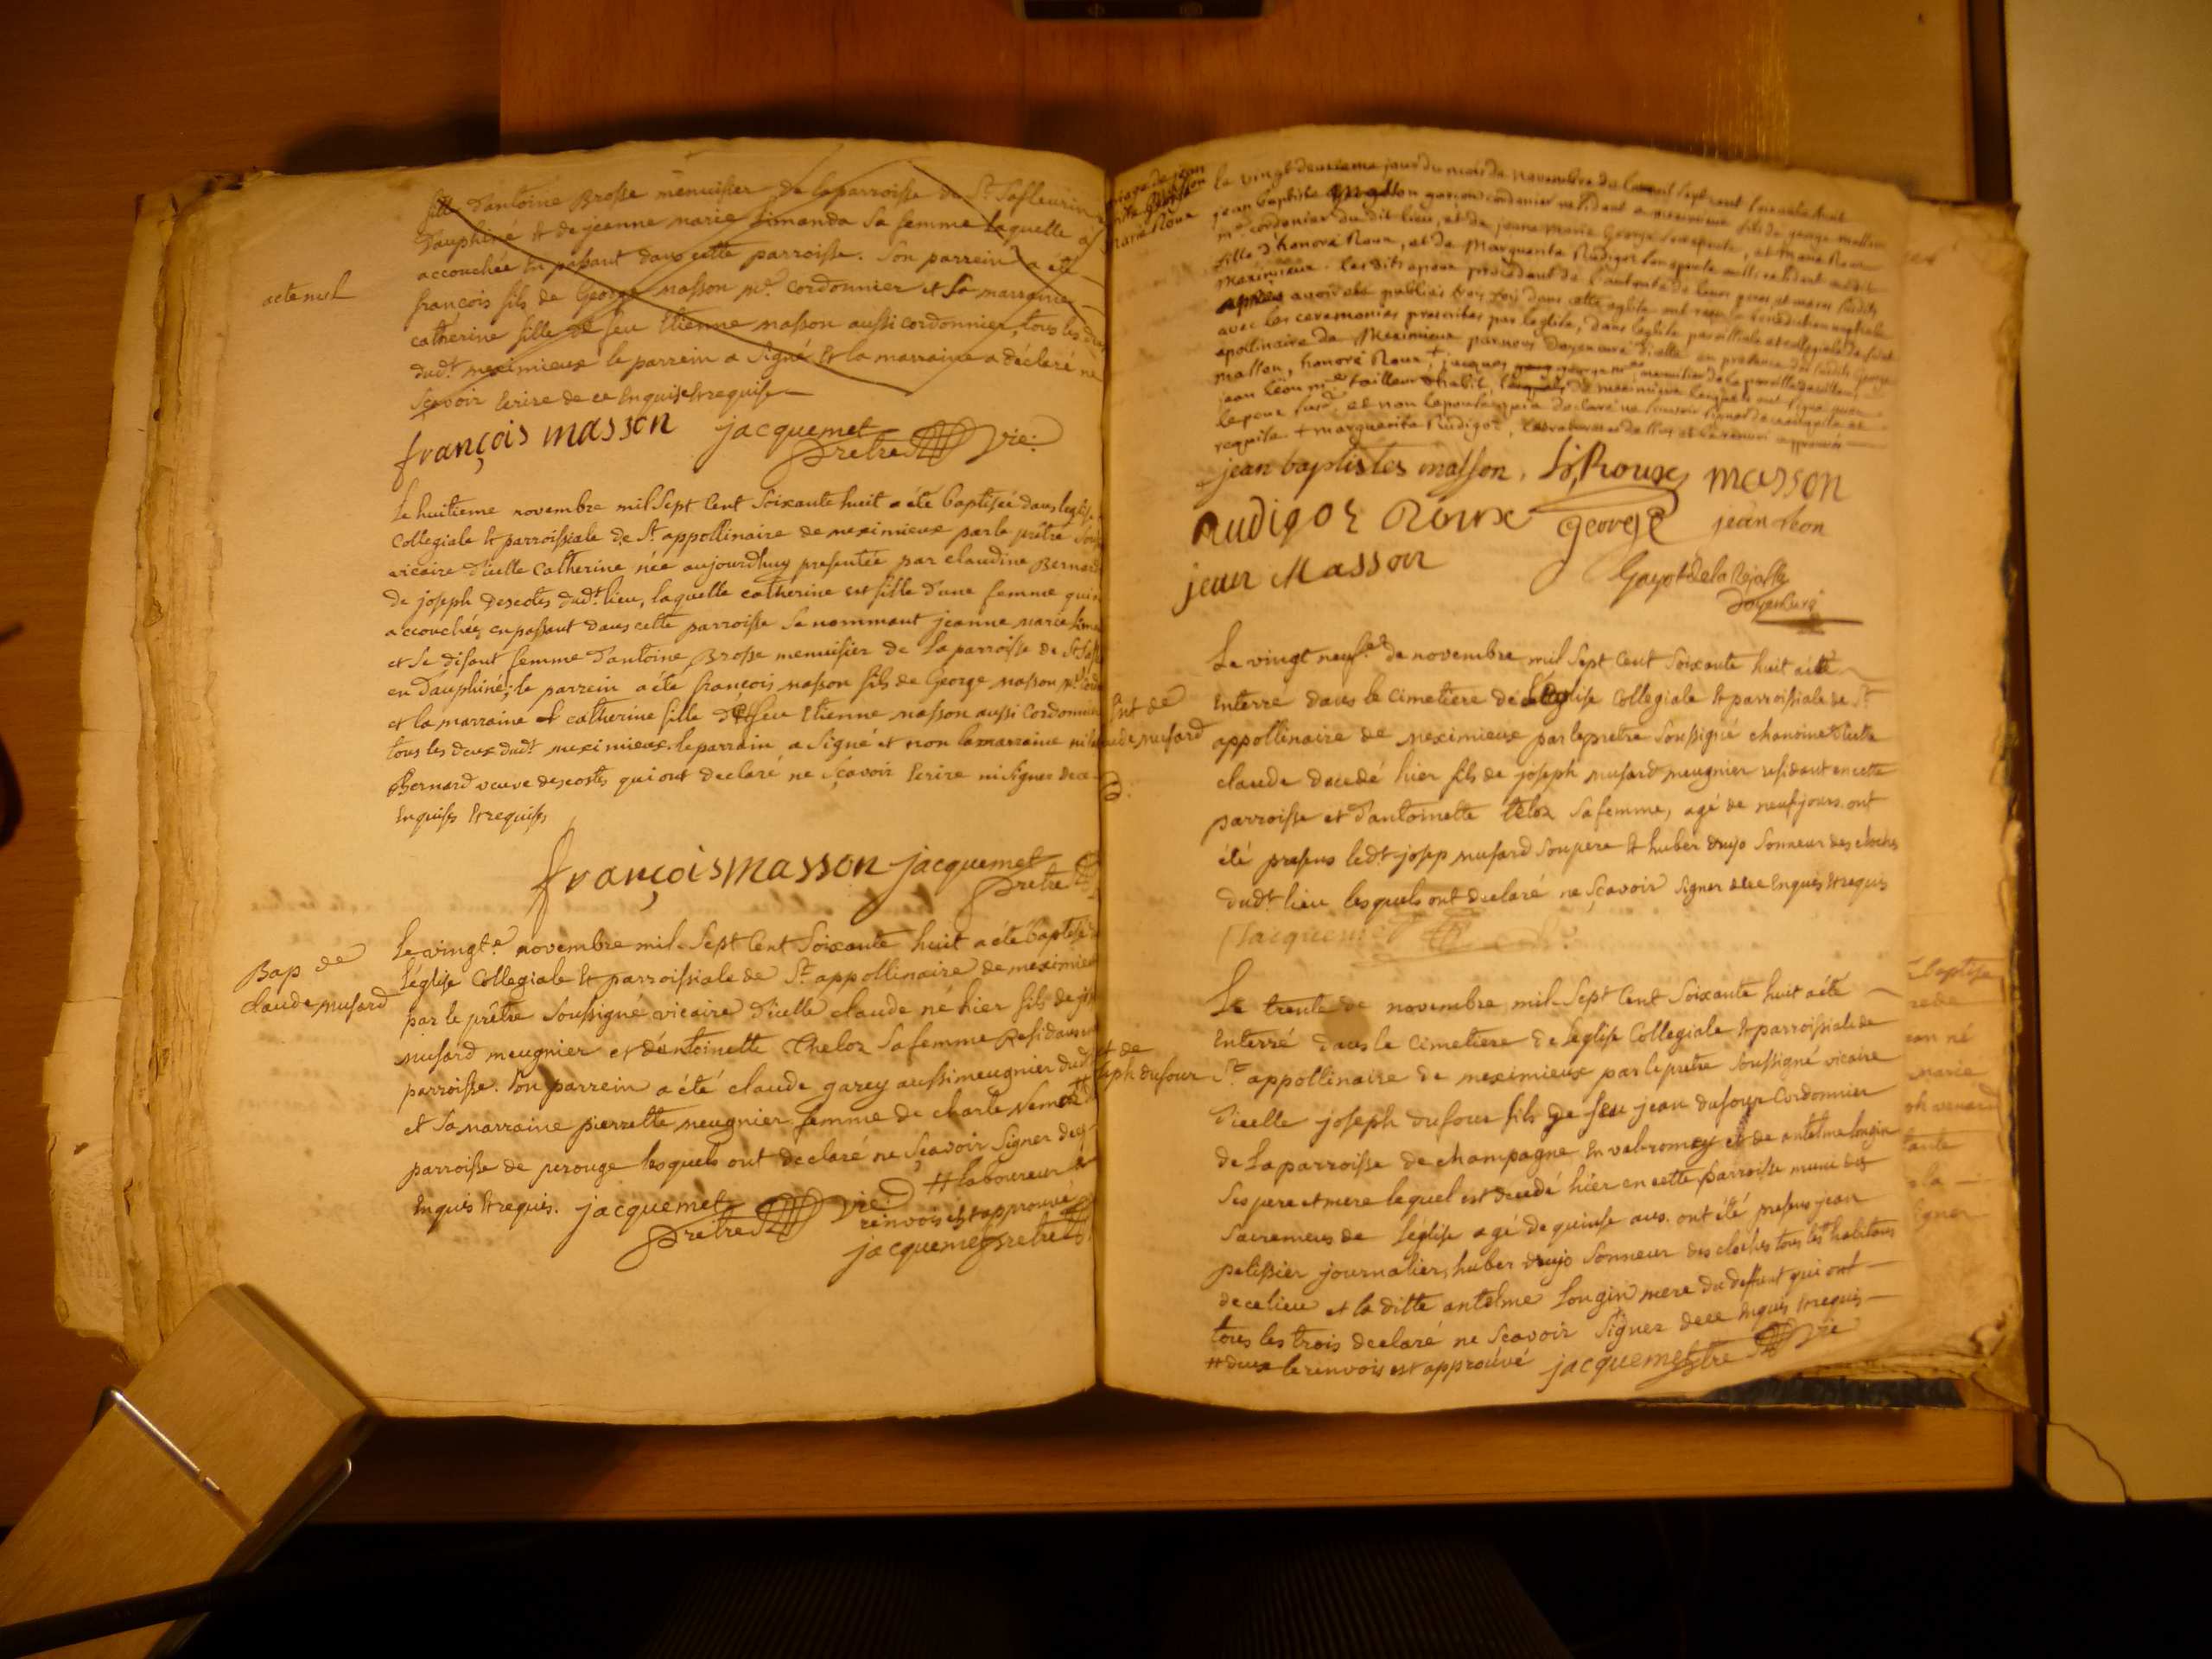 fille d'antoine Brosse menuisier de la parroisse de St Safleurin
Dauphiné & de jeanne marie limanda sa femme laquelle a
accouchée En passant dans cette parroisse. Son parrein a été
acte nul
françois fils de George masson me cordonnier et sa marraine
catherine fille de feu Etienne masson aussi cordonnier, tous les deux
dudt meximieux le parrein a signé & la marraine a déclaré ne
sçavoir Ecrire de ce Enquise & requise
françois masson jacquemet pretre vic:
Le huitieme novembre mil Sept Cent Soixante huit a été baptisée dans leglise
Collegiale & parroissiale de St appollinaire de meximieux par le prêtre
vicaire d'icelle Catherine née aujourdhuy presentée par claudine Bernard
de joseph Descotes dudt lieu, laquelle catherine est fille d'une femme qui
accouchée, en passant dans cette parroisse se nommant jeanne marie
et se disant femme d'antoine Brosse menuisier de la parroisse de St
en Dauphiné; le parrein a été françois masson fils de George masson me
et la marraine catherine fille de feu Etienne masson aussi Cordonnier
tous les deux dudt meximieux. le parrain a signé et non la marraine ni la
Bernard veuve descostes qui ont declaré ne sçavoir Ecrire ni signer de ce
Enquises & requises
françois masson jacquemet pretre
Bap. de
claude musard
Le vingte novembre mil Sept Cent Soixante huit a été baptisé
l'église Collegiale & parroissiale de St appollinaire de meximieux
par le prêtre soussigné vicaire d'icelle claude né hier fils de
musard meugnier et d'antoinette Theloz sa femme Residans
parroisse. son parrein a été claude garey aussi meugnier dudt
et sa marraine pierrette meugnier femme de charle
parroisse de perouge lesquels ont declaré ne sçavoir signer de
Enquis & requis. jacquemet pretre vic: # laboureur
renvois est approuvé
jacquemet pretre
marie Roux
le vingt deuxieme jour du mois de novembre de l'an mil sept cent soixante huit
jean baptiste masson garçon cordonier residant a meximieux fils de george masson
me cordonier du dit lieu, et de jeanne marie George son epouse, et marie Roux
fille d'honoré Roux, et de Marguerite Rudigoz son epouse aussi residant au dit
meximieux. les dits epoux procedant de l'autorité de leurs peres et meres susdits
après avoir été publiés trois fois dans cette eglise ont reçu la benediction nuptiale
avec les ceremonies prescrites par leglise, dans leglise paroissiale et collegiale de saint
apollinaire de Meximieux par nous Doyen curé d'icelle en presence des susdits George
masson, honoré Roux, + jacques george
jean léon me tailleur d'habit, de meximieux lesquels ont signé avec
lepoux susd. et non l'epouse qui a declaré ne sçavoir signer de ce enquise et
requise. + marguerite Rudigoz,
jean baptistes masson. h, Roux masson
Rudigoz Roux george jean léon
jean Masson
Doyen curé
Ent de
claude musard
Le vingt neufe de novembre mil sept Cent Soixante huit a été
Enterré dans le cimetiere de l'Eglise Collegiale & parroissiale de St
appollinaire de meximieux par le pretre soussigné chanoine d'icelle
claude decedé hier fils de joseph musard meugnier residant en cette
parroisse et d'antoinette teloz sa femme, agé de neuf jours. ont
été presens ledt josep musard son pere & huber drujo Sonneur des cloches
dudt lieu lesquels ont declaré ne sçavoir signer de ce Enquis & requis
jacquemet
Ent de
joseph dufour
Le trente de novembre mil Sept Cent Soixante huit a été
Enterré dans le cimetiere de l'eglise Collegiale & parroissiale de
St appollinaire de meximieux par le pretre soussigné vicaire
d'icelle joseph dufour fils de feu jean dufour Cordonnier
de la parroisse de champagne En valromey et de antelme longin
ses pere et mere lequel est decedé hier en cette parroisse muni des
Sacremens de l'église agé de quinse ans. ont été presens jean
pelissier journalier, huber drujo sonneur des cloches tous les # habitans
de ce lieu et la ditte antelme Longin mere du deffunt qui ont
tous les trois declaré ne sçavoir signer de ce Enquis & requis
# deux le renvois est approuvé jacquemet ptre vic